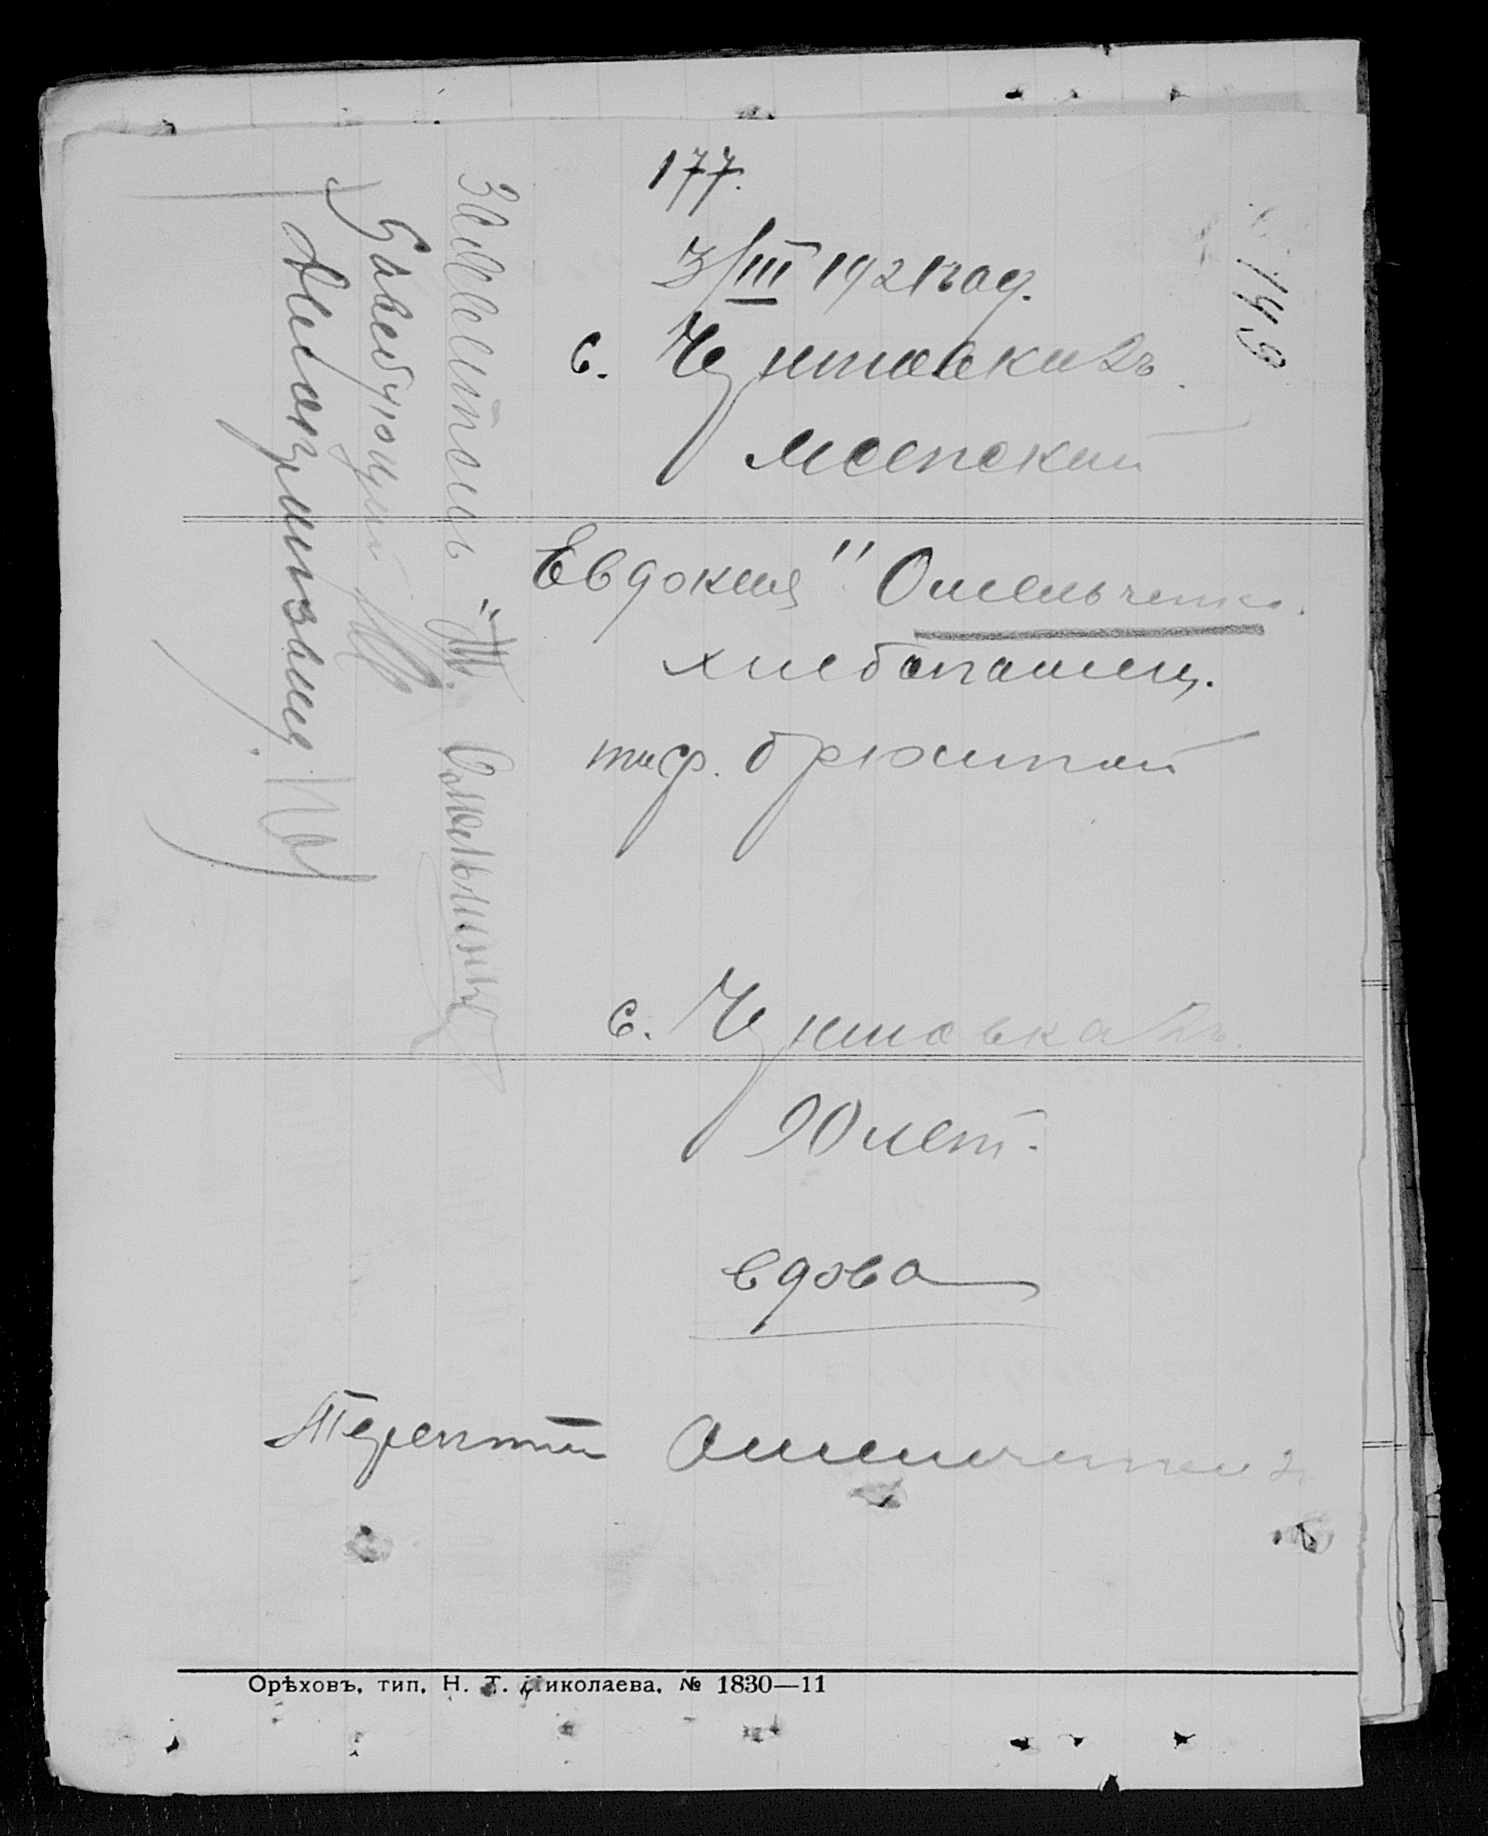 177.
3/III 1921 год.
149
с. Чунишовка
женский
Евдокия " Омельченко.
хлебопашец.
тиф. брюшной
с. Чунишовка
90 лет.
вдова
Терентий Омельченко
Заявитель "Т. Омельченко
Заведующий
Делопроизвод.
Орѣховъ, тип. Н. Т. Николаева, № 1830—11